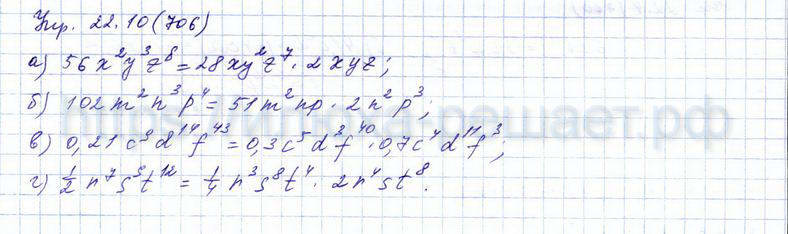 Упр. 22.10(706)
а) 56x²y³z⁸ = 28xy²z⁷ · 2xyz;
б) 102m²n³p⁴ = 51m²np · 2n²p³;
в) 0,21c⁹d¹⁴f⁴³ = 0,3c⁵d³f⁴⁰ · 0,7c⁴d¹¹f³;
г) ½n⁷s⁹t¹² = ¼n³s⁸t⁴ · 2n⁴st⁸.
решает.рф